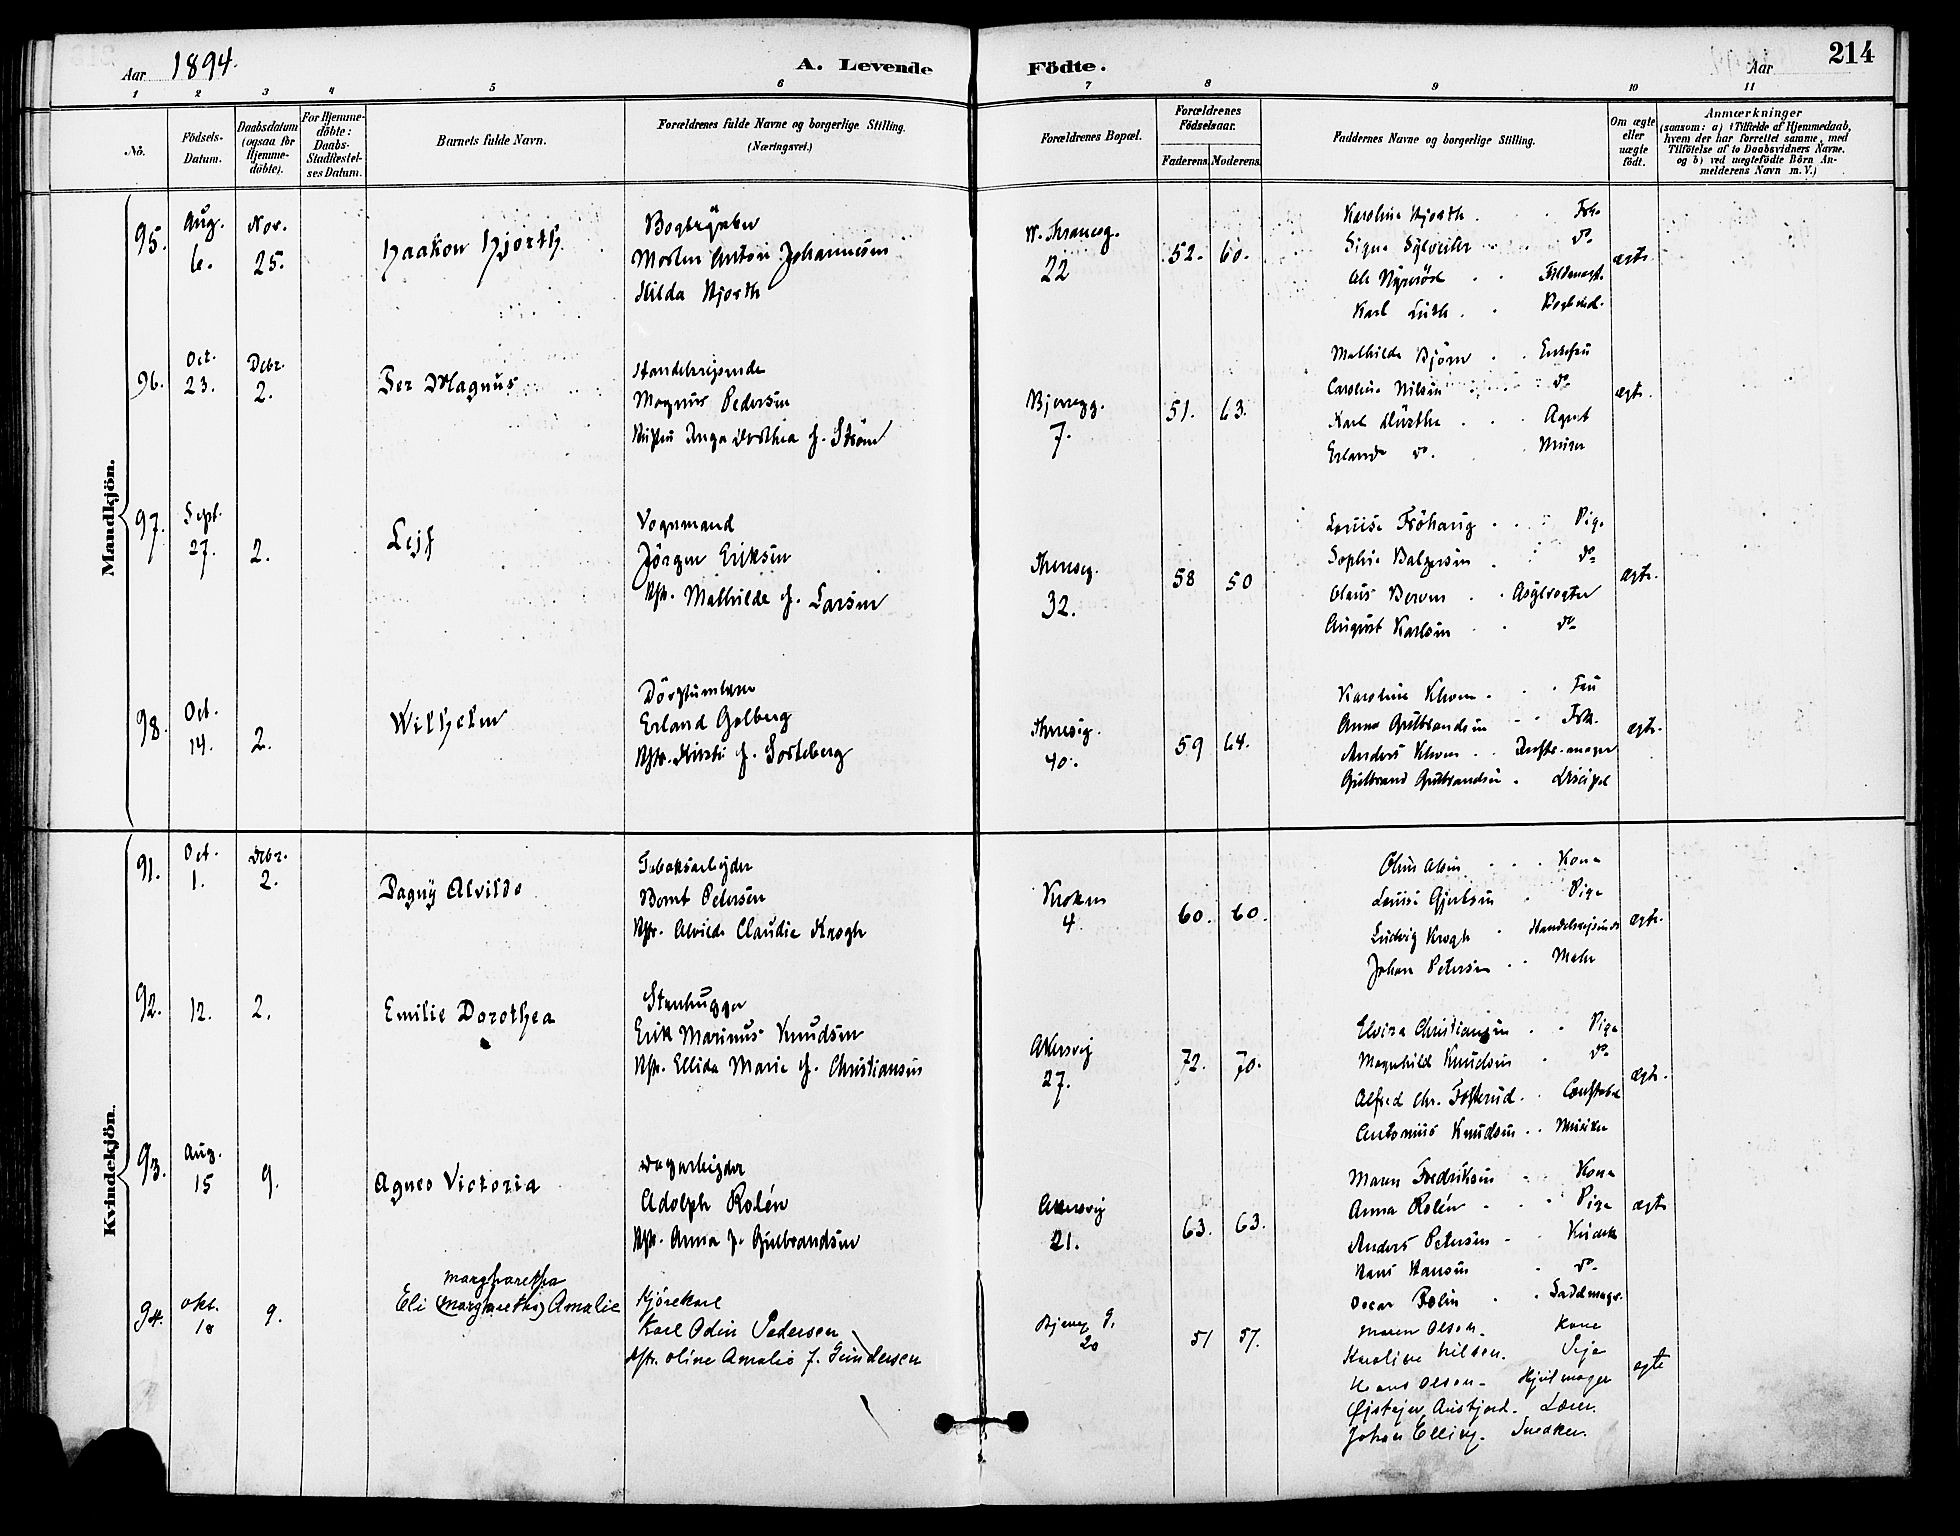 Aar 1894.
A. Levende Födte.
Aar
214
1 2 3 4 5 6 7 8 9 10 11
No.
Födsels-Datum.
Daabsdatum (ogsaa for Hjemme-döbte).
For Hjemme-döbte: Daabs-Stadfæstel-ses Datum.
Barnets fulde Navn.
Forældrenes fulde Navne og borgerlige Stilling.
(Næringsvei.)
Forældrenes Bopæl.
Forældrenes Födselsaar.
Faderens. Moderens.
Faddernes Navne og borgerlige Stilling.
Om ægte eller uægte födt.
Anmærkninger
(saasom: a) i Tilfælde af Hjemmedaab,
hvem der har forrettet samme, med
Tilföielse af to Daabsvidners Navne,
og b) ved uægtefödte Börn An-
melderens Navn m. V.)
Mandkjön.
95. Aug. 6. Nov. 25.
Haakon Hjorth
Morten Anton Johannesen
Hilda Hjorth
22
52. 60.
Karoline Hjorth . . Frk.
Signe Sylvester do
Karl Lüth . .
ægte
96. Oct. 23. Debr. 2.
Per Magnus
Handelsreisende
Magnus Pedersen
Inga Dorthea f. Ström
Bjerregg. 7.
51. 63.
Mathilde Björn . . Enkefru
Caroline Nilsen do
Karl . . . Agent
Erland do. . Murer
ægte.
97. Sept. 27. 2.
Leif
Vognmand
Jörgen Eriksen
Hstr. Mathilde f. Larsen
Thereseg. 32.
58 50
Louise Fröhaug . . Pige
Sophie Balzersen . do
Olaus . .
August Karlsen . . do
ægte.
98. Oct. 14. 2.
Wilhelm
Erland Golberg
Hstr. Kirsti f. Sorteberg
Thereseg. 40.
59 64.
Karoline . . Fru
Anna Gulbrandsen . . Frk.
Anders . .
Gulbrand Gulbrandsen . Discipel
ægte.
Kvindekjön.
91. Oct. 1. Debr. 2.
Dagny Alvilde
Tobaksarbeider
Bernt Petersen
Hstr. Alvilde Claudie Krogh
Kroken 4
60. 60.
Olsen . . . Kone
Louise Gjertsen . Pige
Ludvig Krogh . Handelsreisende
Johan Petersen . . Maler
ægte.
92. 12. 2.
Emilie Dorothea
Stenhugger
Erik Marinus Knudsen
Hstr. Ellida Marie f. Christiansen
Akersvej 27.
72. 70.
Elvira Christiansen . . Pige
Magnhild Knudsen . do
Alfred Chr. . Constabel
Antonius Knudsen . . Musiker
ægte.
93. Aug. 15 9.
Agnes Victoria
Dagarbeider
Adolph Rolén
Hstr. Anna f. Gulbrandsen
Akersvej 21.
63. 63.
Maren Fredriksen . . Kone
Anna Rolén . . Pige
Anders Petersen . . Kudsk
Hans Hansen . do
Oscar Rolén . . Sadelmager.
ægte
94. Okt. 18 9.
Margharetha
Eli (Margharetha) Amalie
Kjörekarl
Karl Odin Pedersen
Hstr. Oline Amalie f. Gundersen
Bjerreg. 20
51 57.
Maren Olsen. Kone
Karoline Nilsen. Pige
Hans Olsen. Hjulmager
Øistejn Austjord. Lærer.
Johan Elling. Snedker.
ægte